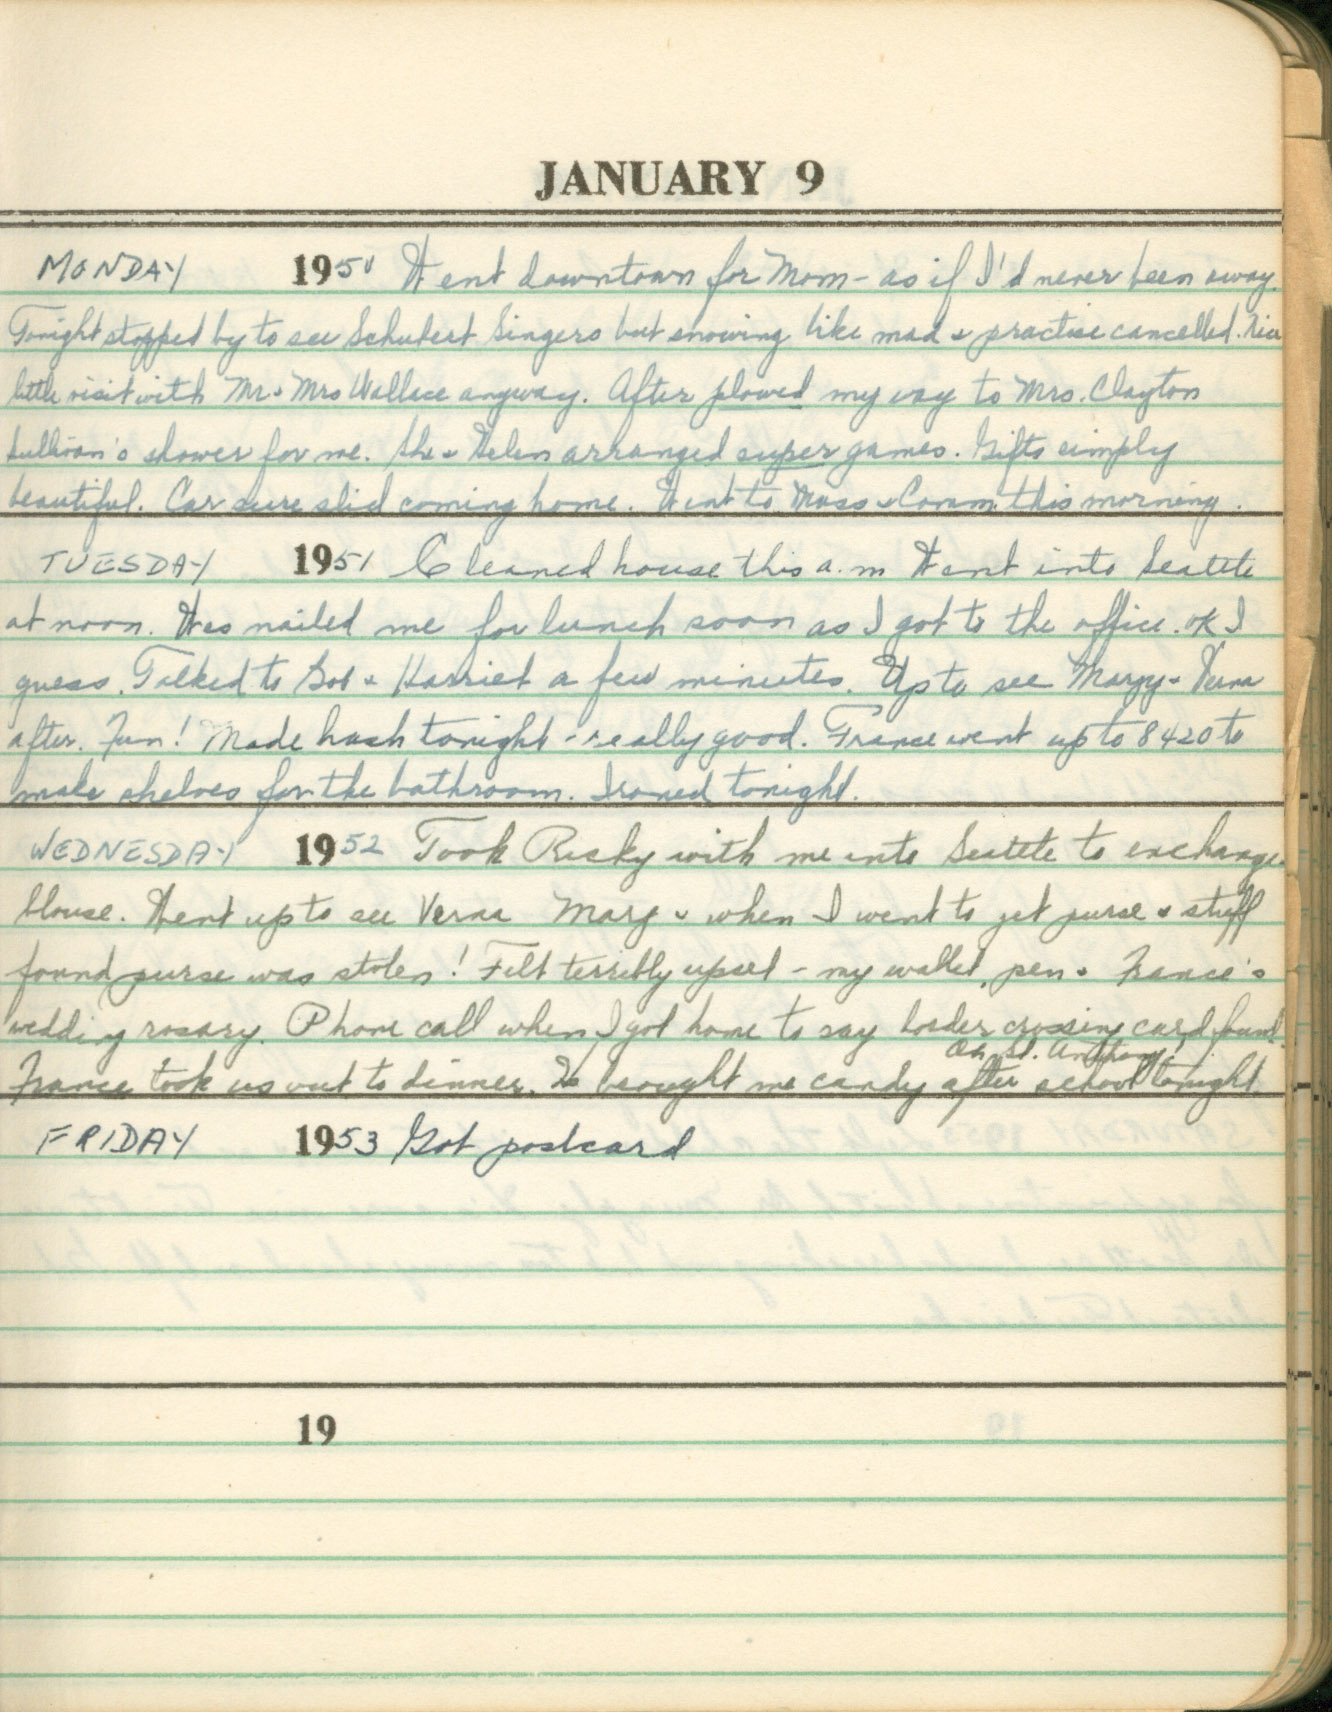 JANUARY 9
MONDAY 1950 Went downtown for Mom - as if I'd never been away.
Tonight stopped by to see Schubert Singers but snowing like mad & practise cancelled. Nice
little visit with Mr. & Mrs Wallace anyway. After plowed my way to Mrs. Clayton
Sullivan's shower for me. She & Helen arranged super games. Gifts simply
beautiful. Car sure slid coming home. Went to Mass & Comm. this morning.
TUESDAY 1951 Cleaned house this a.m Went into Seattle
at noon. Wes nailed me for lunch soon as I got to the office. OK I
guess. Talked to Bob & Harriet a few minutes. Up to see Margy & Verna
after. Fun! Made hash tonight - really good. France went up to 8420 to
make shelves for the bathroom. Ironed tonight.
WEDNESDAY 1952 Took Ricky with me into Seattle to exchange
blouse. Went up to see Verna Marg & when I went to get purse & stuff
found purse was stolen! Felt terribly upset - my wallet, pen & France's
wedding rosary. Phone call when I got home to say border crossing card found.
Oh, St. Anthony!
France took us out to dinner. He brought me candy after school tonight.
FRIDAY 1953 Got postcard
19